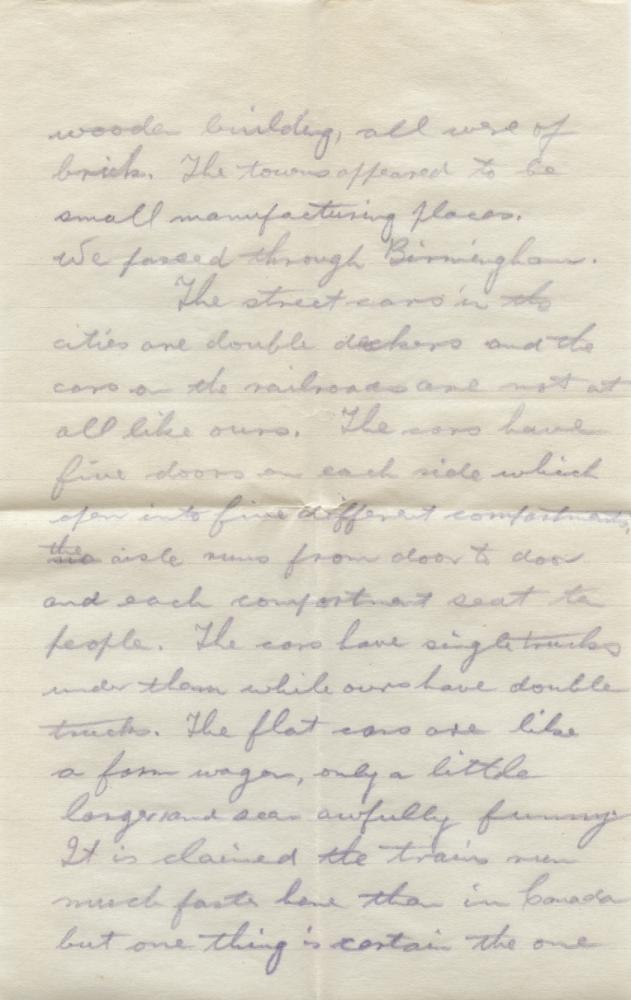 wooden building, all were of
brick. The towns appeared to be
small manufacturing places.
We passed through Birmingham.
The street cars in the
cities are double deckers and the
cars on the railroads are not at
all like ours. The cars have
five doors on each side which
open into five different compartments,
the aisle runs from door to door
and each compartment seat ten
people. The cars have single trucks
under them while ours have double
trucks. The flat cars are like
a farm wagon, only a little
longer and are awfully funny.
It is claimed the trains run
much faster here than in Canada
but one thing is certain the one